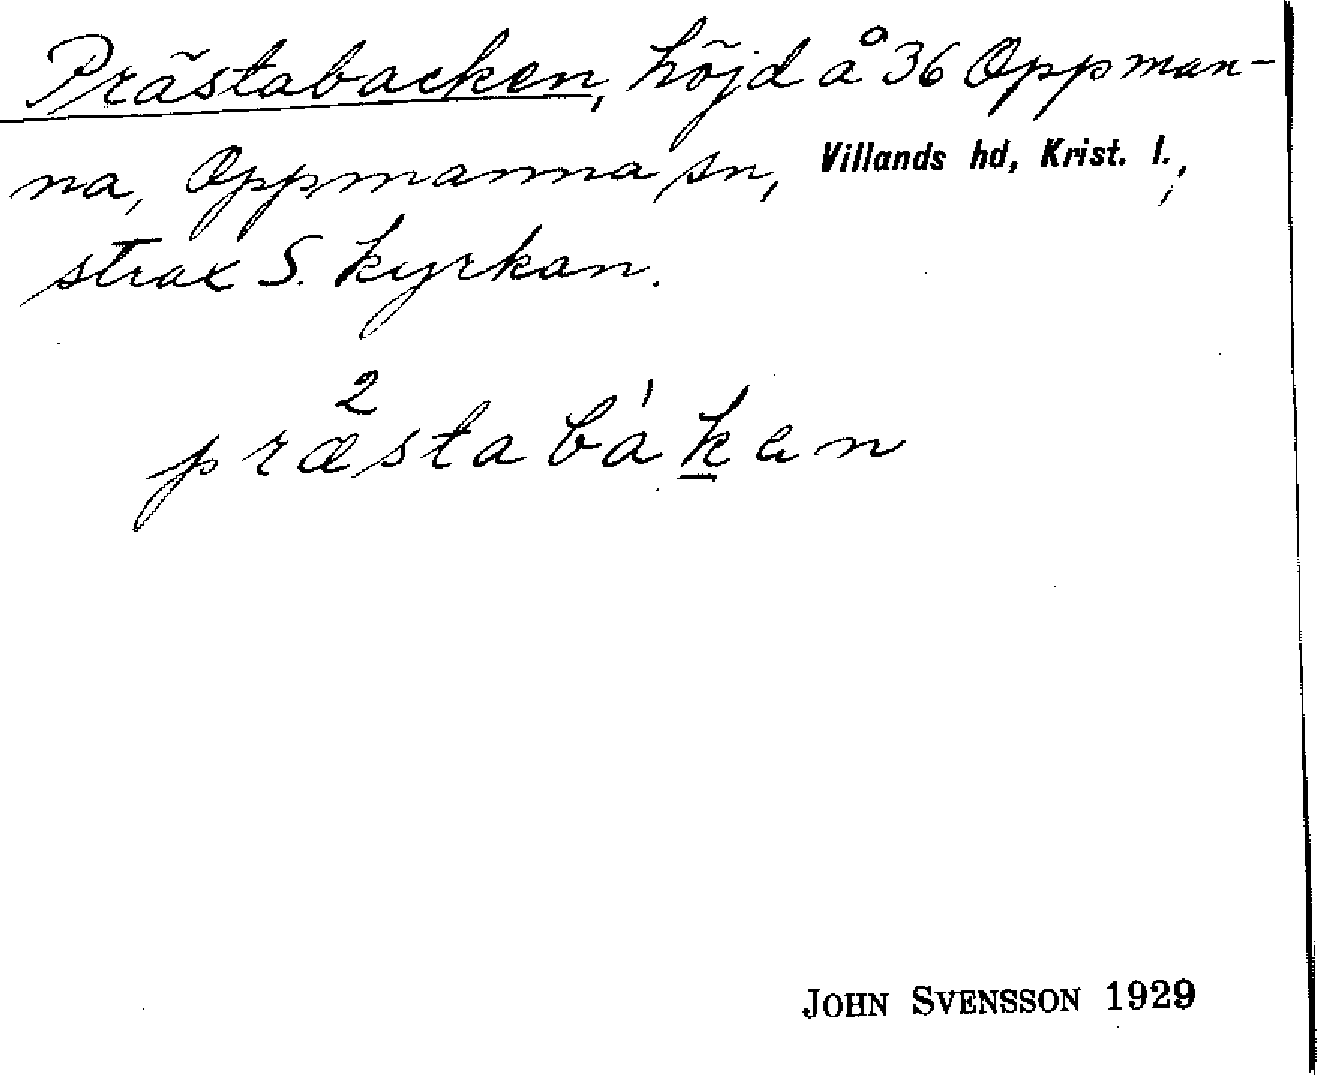 Prästabacken, höjd å 36 Oppman-
na, Oppmanna sn, Villands hd, Krist. l.,
strax S. kyrkan.
præ²stabá'k̲an
JOHN SVENSSON 1929